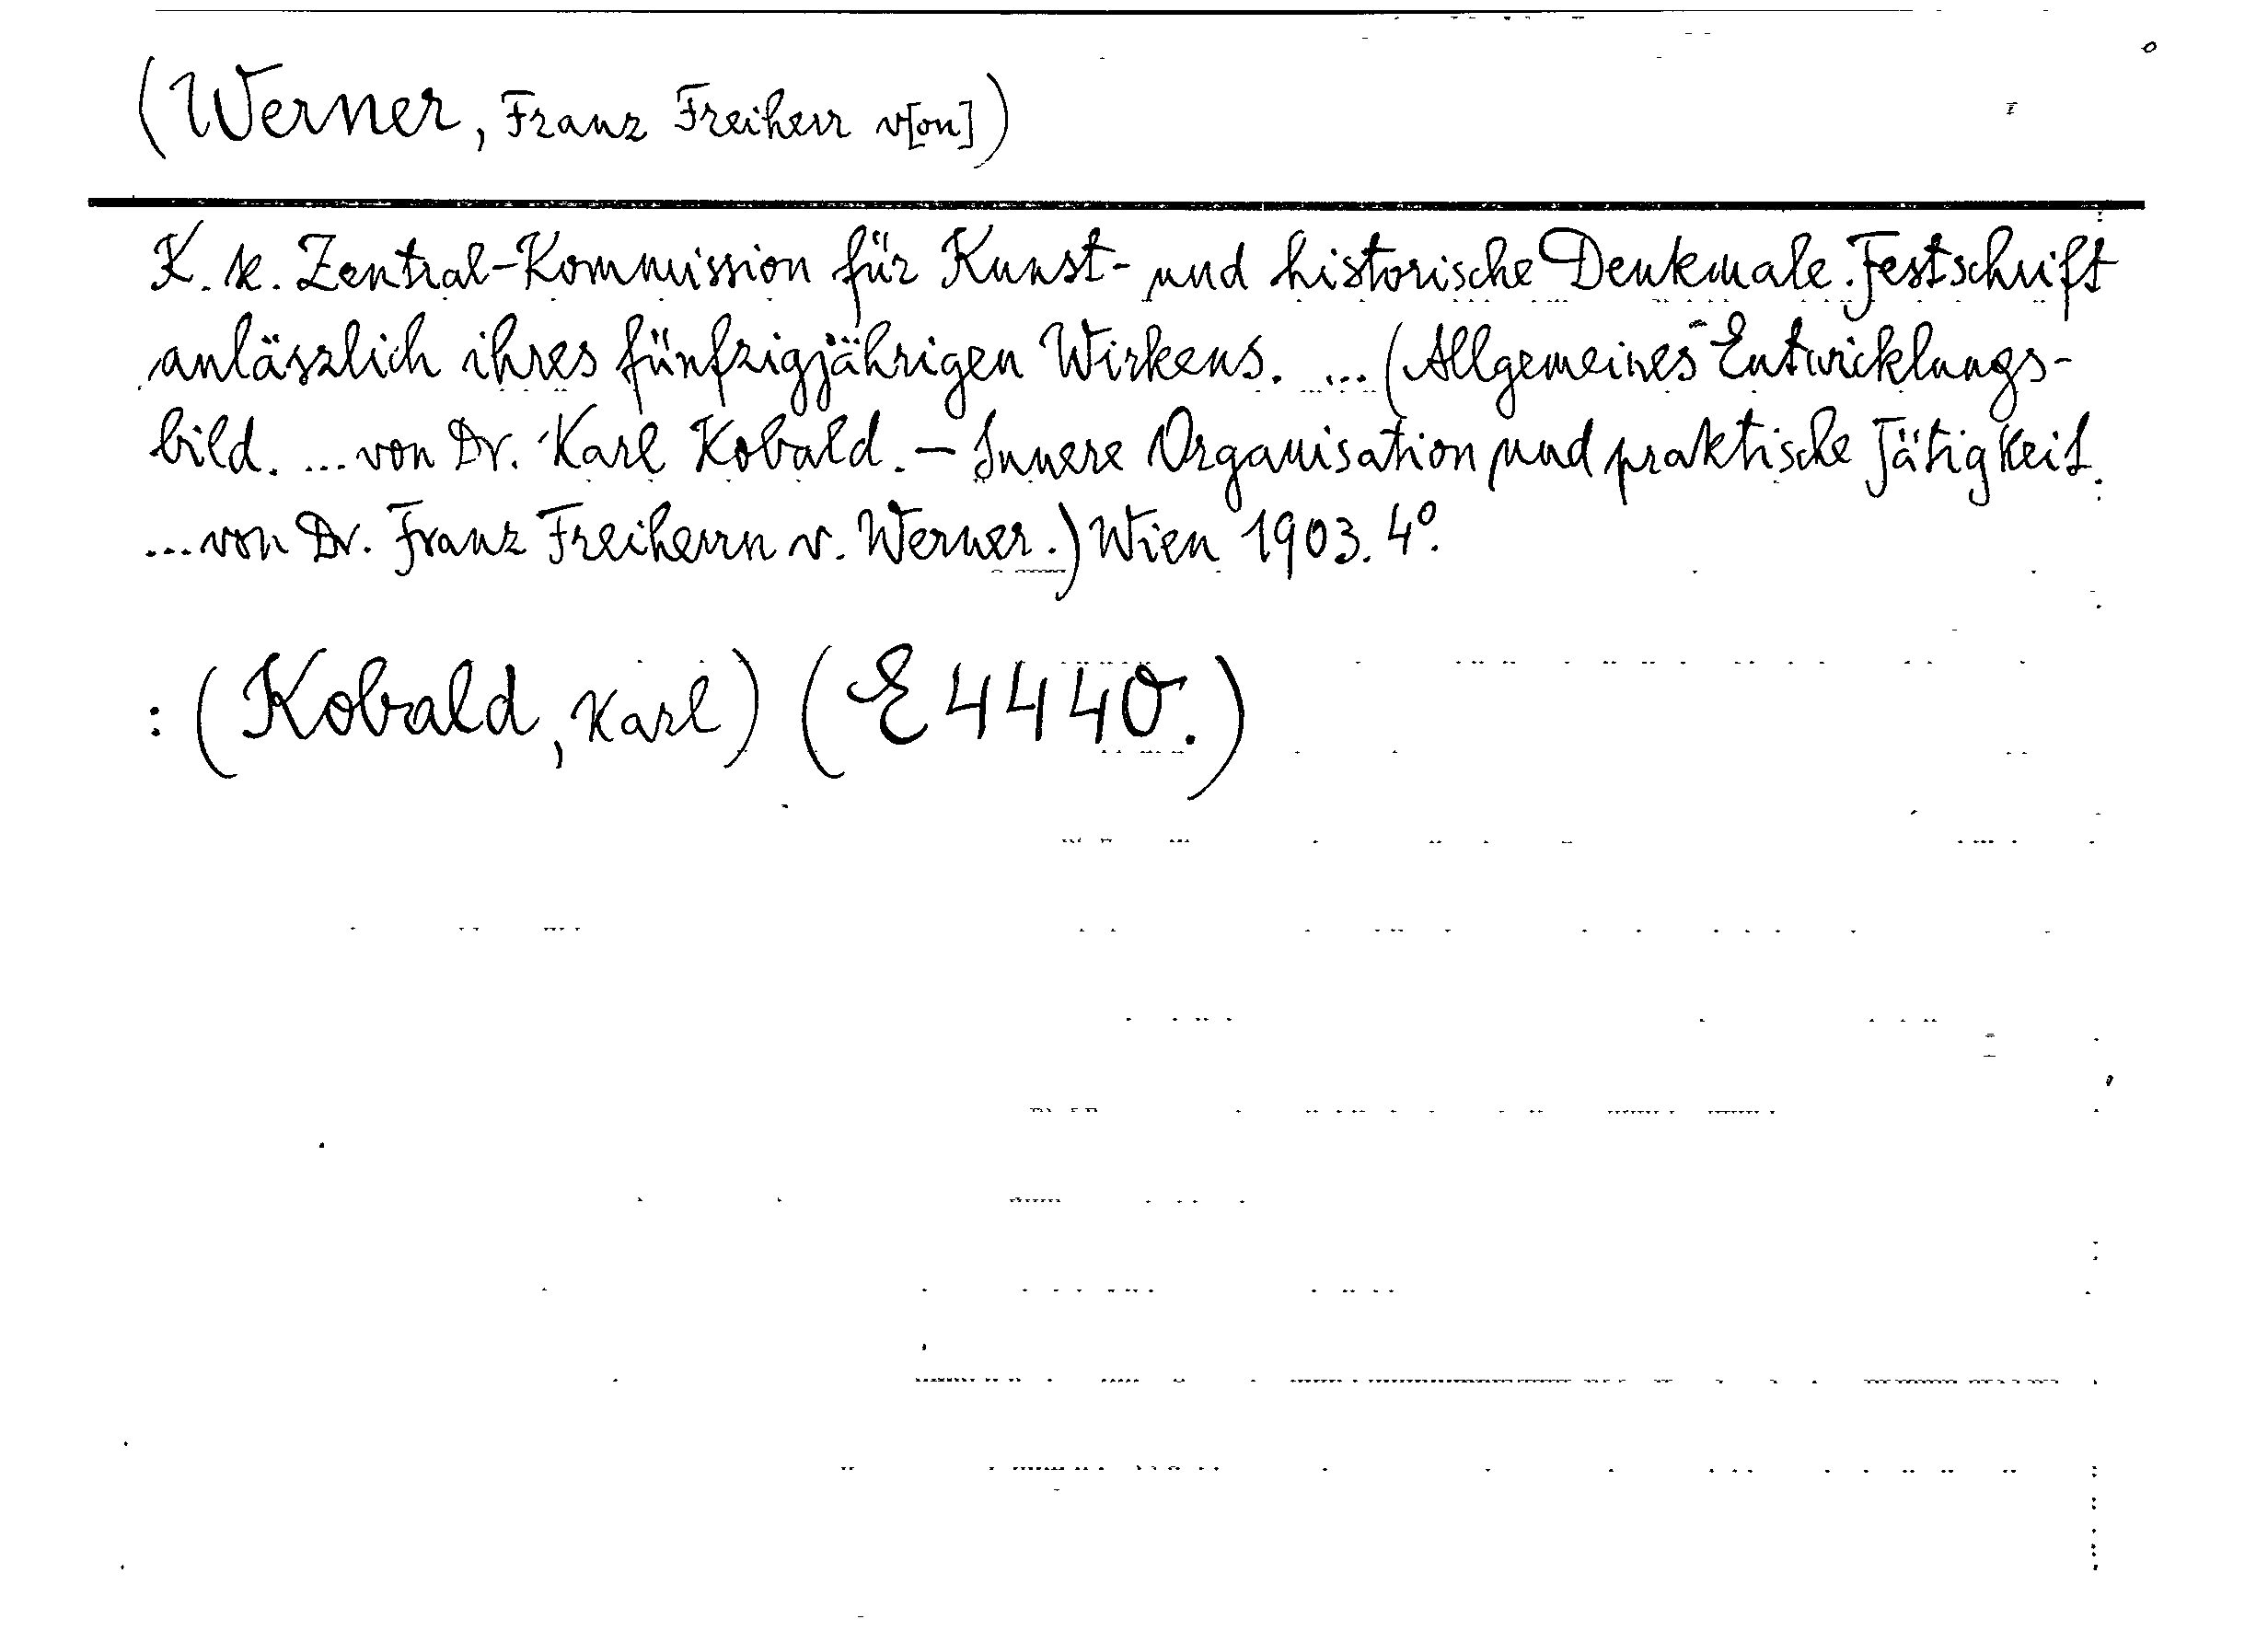 (Werner, Franz Freiherr v[on])
K. k. Zentral-Kommission für Kunst- und historische Denkmale. Festschrift
anläszlich ihres fünfzigjährigen Wirkens. ... (Allgemeines Entwicklungs-
bild. ... von Dr. Karl Kobald. - Innere Organisation und praktische Tätigkeit.
... von Dr. Franz Freiherrn v. Werner.) Wien 1903. 4°.
: (Kobald, Karl) (E 4440.)